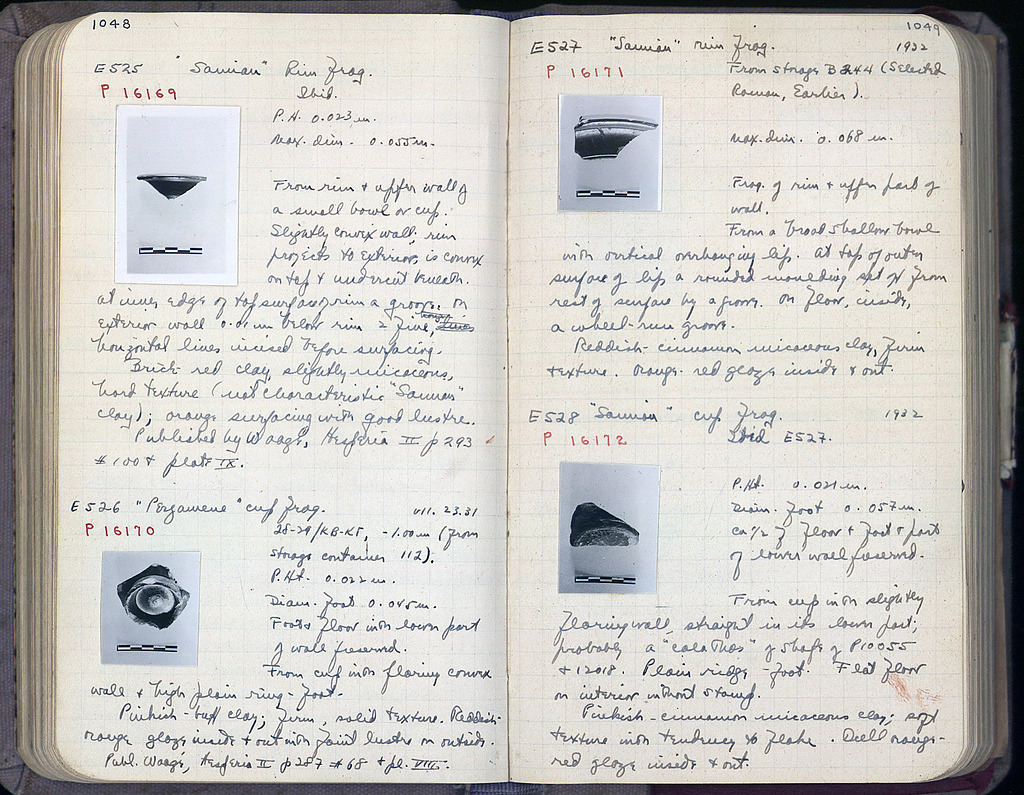 1048
E 525 "Samian" Rim Frag.
P 16169 Ibid.
P.H. 0.023 m.
Max. dim. 0.055 m.
From rim + upper wall of
a small bowl or cup.
Slightly convex wall; rim
projects to exterior, is convex
on top & undercut beneath.
At inner edge of top surface of rim a groove. On
exterior wall 0.01 m below rim 2 fine,
horizontal lines incised before surfacing.
Brick-red clay, slightly micaceous,
hard texture (not characteristic "Samian"
clay); orange surfacing with good lustre.
Published by Waagé, Hesperia II p 293
# 100 + plate IX.
E 526 "Pergamene" cup frag. VII. 23.31
P 16170 28-29/KB-KT, -1.00 m (from
storage container 112).
P.Ht. 0.022 m.
Diam. foot 0.045 m.
Foot & floor with lower part
of wall preserved.
From cup with flaring convex
wall + high plain ring-foot.
Pinkish-buff clay; firm, solid texture. Reddish-
orange glaze inside + out with faint lustre on outside.
Publ. Waagé, Hesperia II p 287 # 68 + pl. VIII.
1049
E 527 "Samian" rim frag. 1932
P 16171 From storage B 244 (Selected
Roman, Earlier).
Max. dim. 0.068 m.
Frag. of rim + upper part of
wall.
From a broad shallow bowl
with vertical overhanging lip. At top of outer
surface of lip a rounded moulding set off from
rest of surface by a groove. On floor, inside,
a wheel-run groove.
Reddish-cinnamon micaceous clay, firm
texture. Orange-red glaze inside & out.
E 528 "Samian" cup frag. 1932
P 16172 Ibid E527.
P.Ht. 0.021 m.
Diam. foot 0.057 m.
ca ½ of floor + foot & part
of lower wall preserved.
From cup with slightly
flaring wall, straight in its lower part;
probably a "calathos" of shape of P10055
+ 12018. Plain ridge-foot. Flat floor
on interior without stamp.
Pinkish-cinnamon micaceous clay; soft
texture with tendency to flake. Dull orange-
red glaze inside & out.